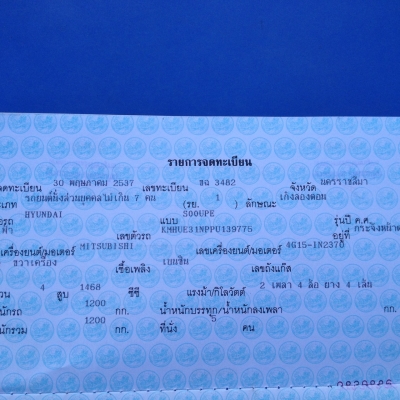 รายการจดทะเบียน
จดทะเบียน 30 พฤษภาคม 2537 เลขทะเบียน 3482 จังหวัด นครราชสีมา
รถยนต์นั่งส่วนบุคคลไม่เกิน 7 คน (รย. 1 ) ลักษณะ เก๋งสองตอน
HYUNDAI แบบ SOOUPE รุ่นปี ค.ศ.
เลขตัวรถ KMHUE31NPPU139775 อยู่ที่
MITSUBISHI เลขเครื่องยนต์/มอเตอร์ 4G15-1N2370
ขวาเครื่อง เชื้อเพลิง เบนซิน เลขถังแก๊ส
4 สูบ 1468 ซีซี แรงม้า/กิโลวัตต์ 2 เพลา 4 ล้อ ยาง 4 เส้น
1200 กก. น้ำหนักบรรทุก/น้ำหนักลงเพลา กก.
1200 กก. ที่นั่ง 5 คน